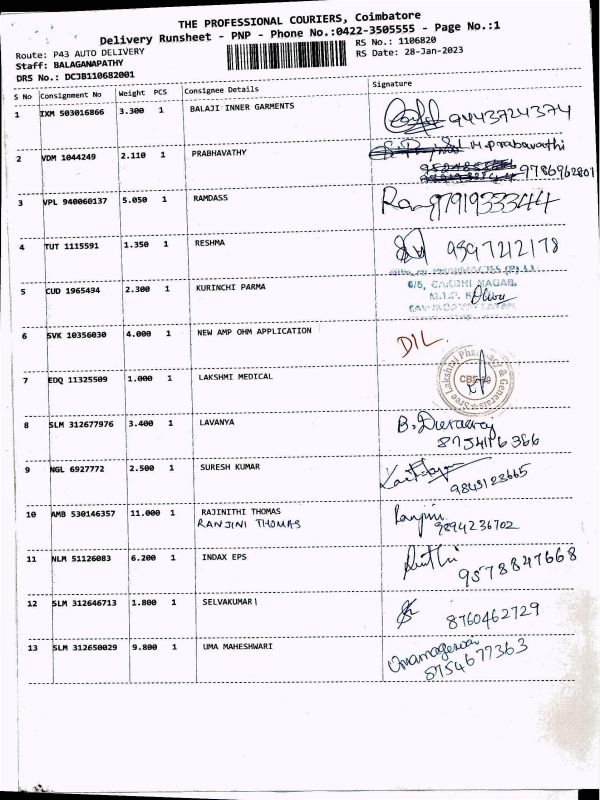 THE PROFESSIONAL COURIERS, Coimbatore
Delivery Runsheet - PNP - Phone No.:0422-3505555 - Page No.:1
Route: P43 AUTO DELIVERY
RS No.: 1106820
Staff: BALAGANAPATHY
RS Date: 28-Jan-2023
DRS No.: DCJB110682001
S No Consignment No Weight PCS Consignee Details Signature
1 IXM 503016866 3.300 1 BALAJI INNER GARMENTS 9443724374
2 VDM 1044249 2.110 1 PRABHAVATHY M.prabavathi
9786962801
3 VPL 940060137 5.050 1 RAMDASS 97919333444
4 TUT 1115591 1.350 1 RESHMA 9397212178
5 CUD 1965494 2.300 1 KURINCHI PARMA
6/5, SAKTHI NAGAR,
6 SVK 10356030 4.000 1 NEW AMP OHM APPLICATION DIL
7 EDQ 11325509 1.000 1 LAKSHMI MEDICAL Sree Lakshmi Pharmacy & Generals
8 SLM 312677976 3.400 1 LAVANYA B. Duraeraj
8754116366
9 NGL 6927772 2.500 1 SURESH KUMAR
9843128665
10 AMB 530146357 11.000 1 RAJINITHI THOMAS Ranjini
RANJINI THOMAS 9894236702
11 NLM 51126083 6.200 1 INDAX EPS
9578847668
12 SLM 312646713 1.800 1 SELVAKUMAR 8760462729
13 SLM 312650029 9.800 1 UMA MAHESHWARI Umamageswari
8754677363